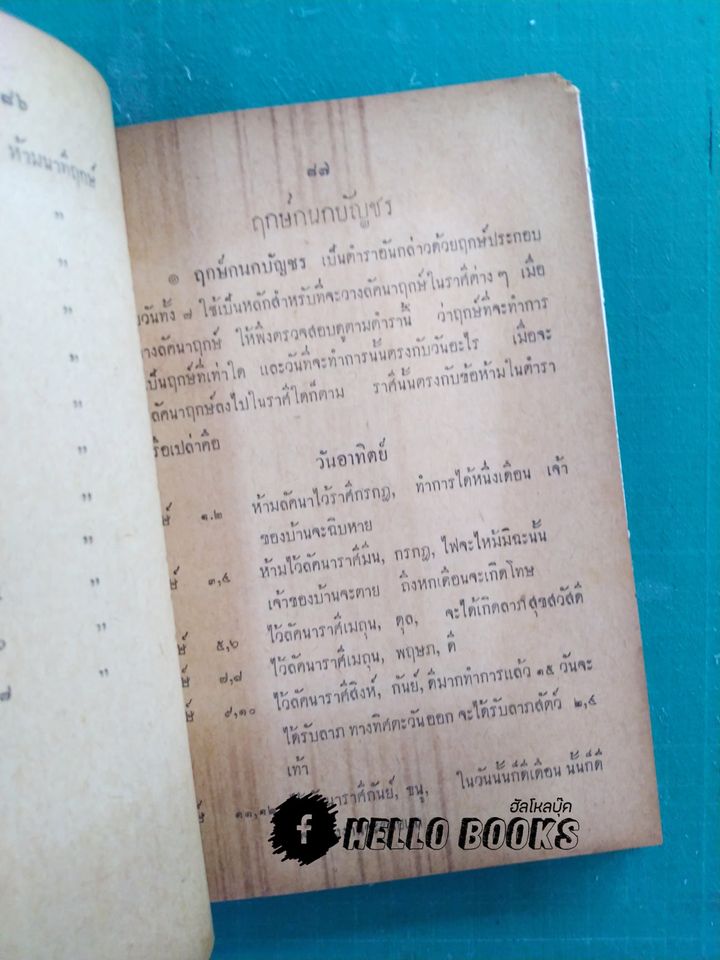 ๘๖
ห้ามนาทีฤกษ์
"
"
"
"
"
"
"
"
"
"
"
๘๗
ฤกษ์กนกบัญชร
๏ ฤกษ์กนกบัญชร เป็นตำราอันกล่าวด้วยฤกษ์ประกอบ
วันทั้ง ๗ ใช้เป็นหลักสำหรับที่จะวางลัคนาฤกษ์ในราศีต่าง ๆ เมื่อ
วางลัคนาฤกษ์ ให้พึงตรวจสอบดูตามตำรานี้ ว่าฤกษ์ที่จะทำการ
เป็นฤกษ์ที่เท่าใด และวันที่จะทำการนั้นตรงกับวันอะไร เมื่อจะ
ลัคนาฤกษ์ลงไปในราศีใดก็ตาม ราศีนั้นตรงกับข้อห้ามในตำรา
หรือเปล่าคือ
วันอาทิตย์
๑.๒ ห้ามลัคนาไว้ราศีกรกฎ, ทำการได้หนึ่งเดือน เจ้า
ของบ้านจะฉิบหาย
๓,๔ ห้ามไว้ลัคนาราศีมีน, กรกฎ, ไฟจะไหม้มิฉะนั้น
เจ้าของบ้านจะตาย ถึงหกเดือนจะเกิดโทษ
๕,๖ ไว้ลัคนาราศีเมถุน, ตุล, จะได้เกิดลาภสุขสวัสดี
๗,๘ ไว้ลัคนาราศีเมถุน, พฤษภ, ดี
๙,๑๐ ไว้ลัคนาราศีสิงห์, กันย์, ดีมากทำการแล้ว ๑๕ วันจะ
ได้รับลาภ ทางทิศตะวันออก จะได้รับลาภสัตว์ ๒,๔
เท้า
๑๑,๑๒ ราศีกันย์, ธนู, ในวันนั้นก็ดีเดือน นั้นก็ดี
ฮัลโหลบุ๊ค
f HELLO BOOKS